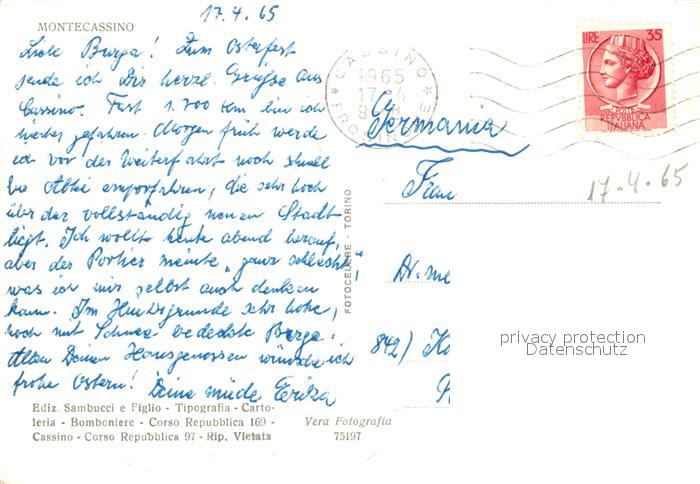 17.4.65
MONTECASSINO
Liebe Burga! Zum Osterfest
sende ich Dir herzl. Grüße aus
Cassino. Fast 1.700 km bin ich
hierher gefahren. Morgen früh werde
ich vor der Weiterfahrt noch schnell
zur Abtei emporfahren, die sehr hoch
über der vollständig neuen Stadt
liegt. Ich wollte heute abend herauf,
aber der Portier meinte „ganz schlecht",
was ich mir selbst auch denken
kann. Im Hintergrunde sehr hohe,
noch mit Schnee bedeckte Berge.
Allen Deinen Hausgenossen wünsche ich
frohe Ostern! Deine müde Erika
Ediz. Sambucci e Figlio - Tipografia - Carto-
leria - Bomboniere - Corso Repubblica 169 -
Cassino - Corso Repubblica 97 - Rip. Vietata
Vera Fotografia
75197
FOTOCELERE - TORINO
CASSINO
1965
17.4
LIRE 35
POSTE
REPVBBLICA
ITALIANA
Germania
Frau
17-4-65
Dr. me
842)
privacy protection
Datenschutz